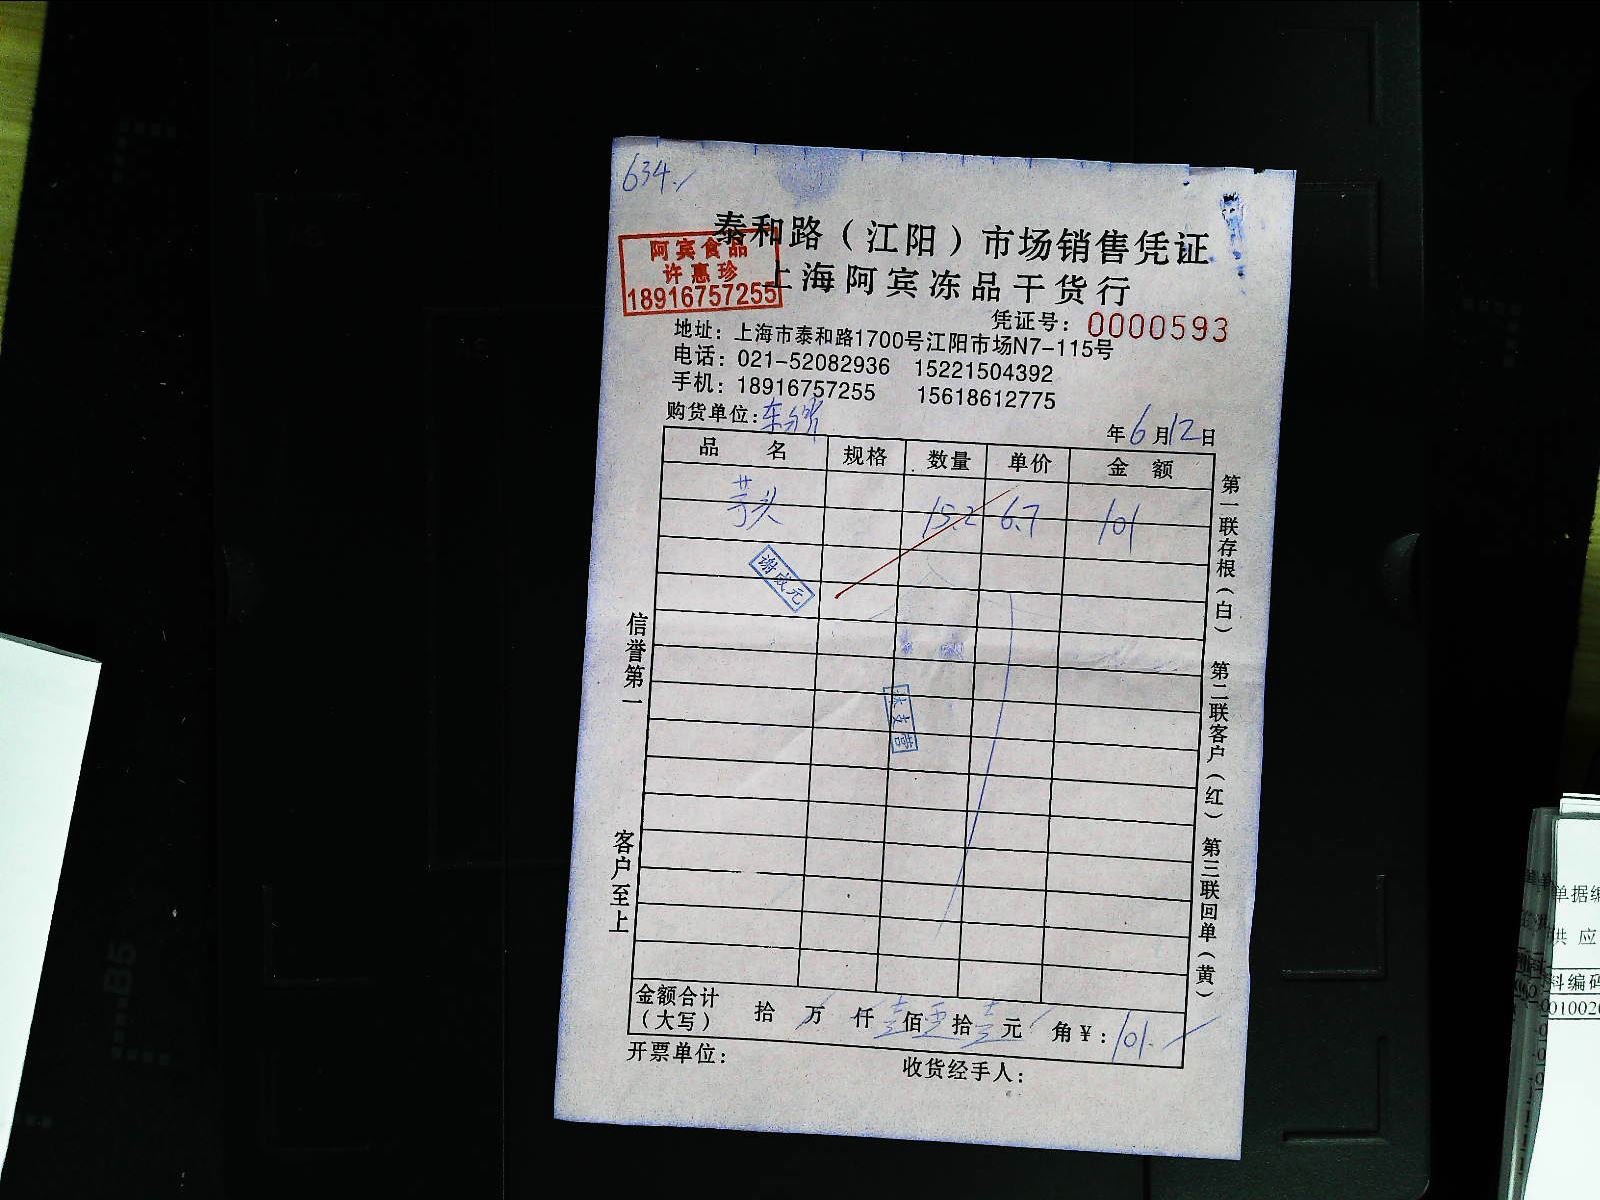 634.
泰和路（江阳）市场销售凭证
阿宾食品
许惠珍
18916757255
上海阿宾冻品干货行
凭证号：0000593
地址：上海市泰和路1700号江阳市场N7-115号
电话：021-52082936 15221504392
手机：18916757255 15618612775
购货单位：
年6月12日
品名 规格 数量 单价 金额
芋头 15.2 6.7 101
谢成元
信誉第一
客户至上
第一联存根（白）
第二联客户（红）
第三联回单（黄）
金额合计（大写） 拾 万 仟 壹佰 零拾 壹元 角￥：101.
开票单位：
收货经手人：
B5
单据编
供应
料编码